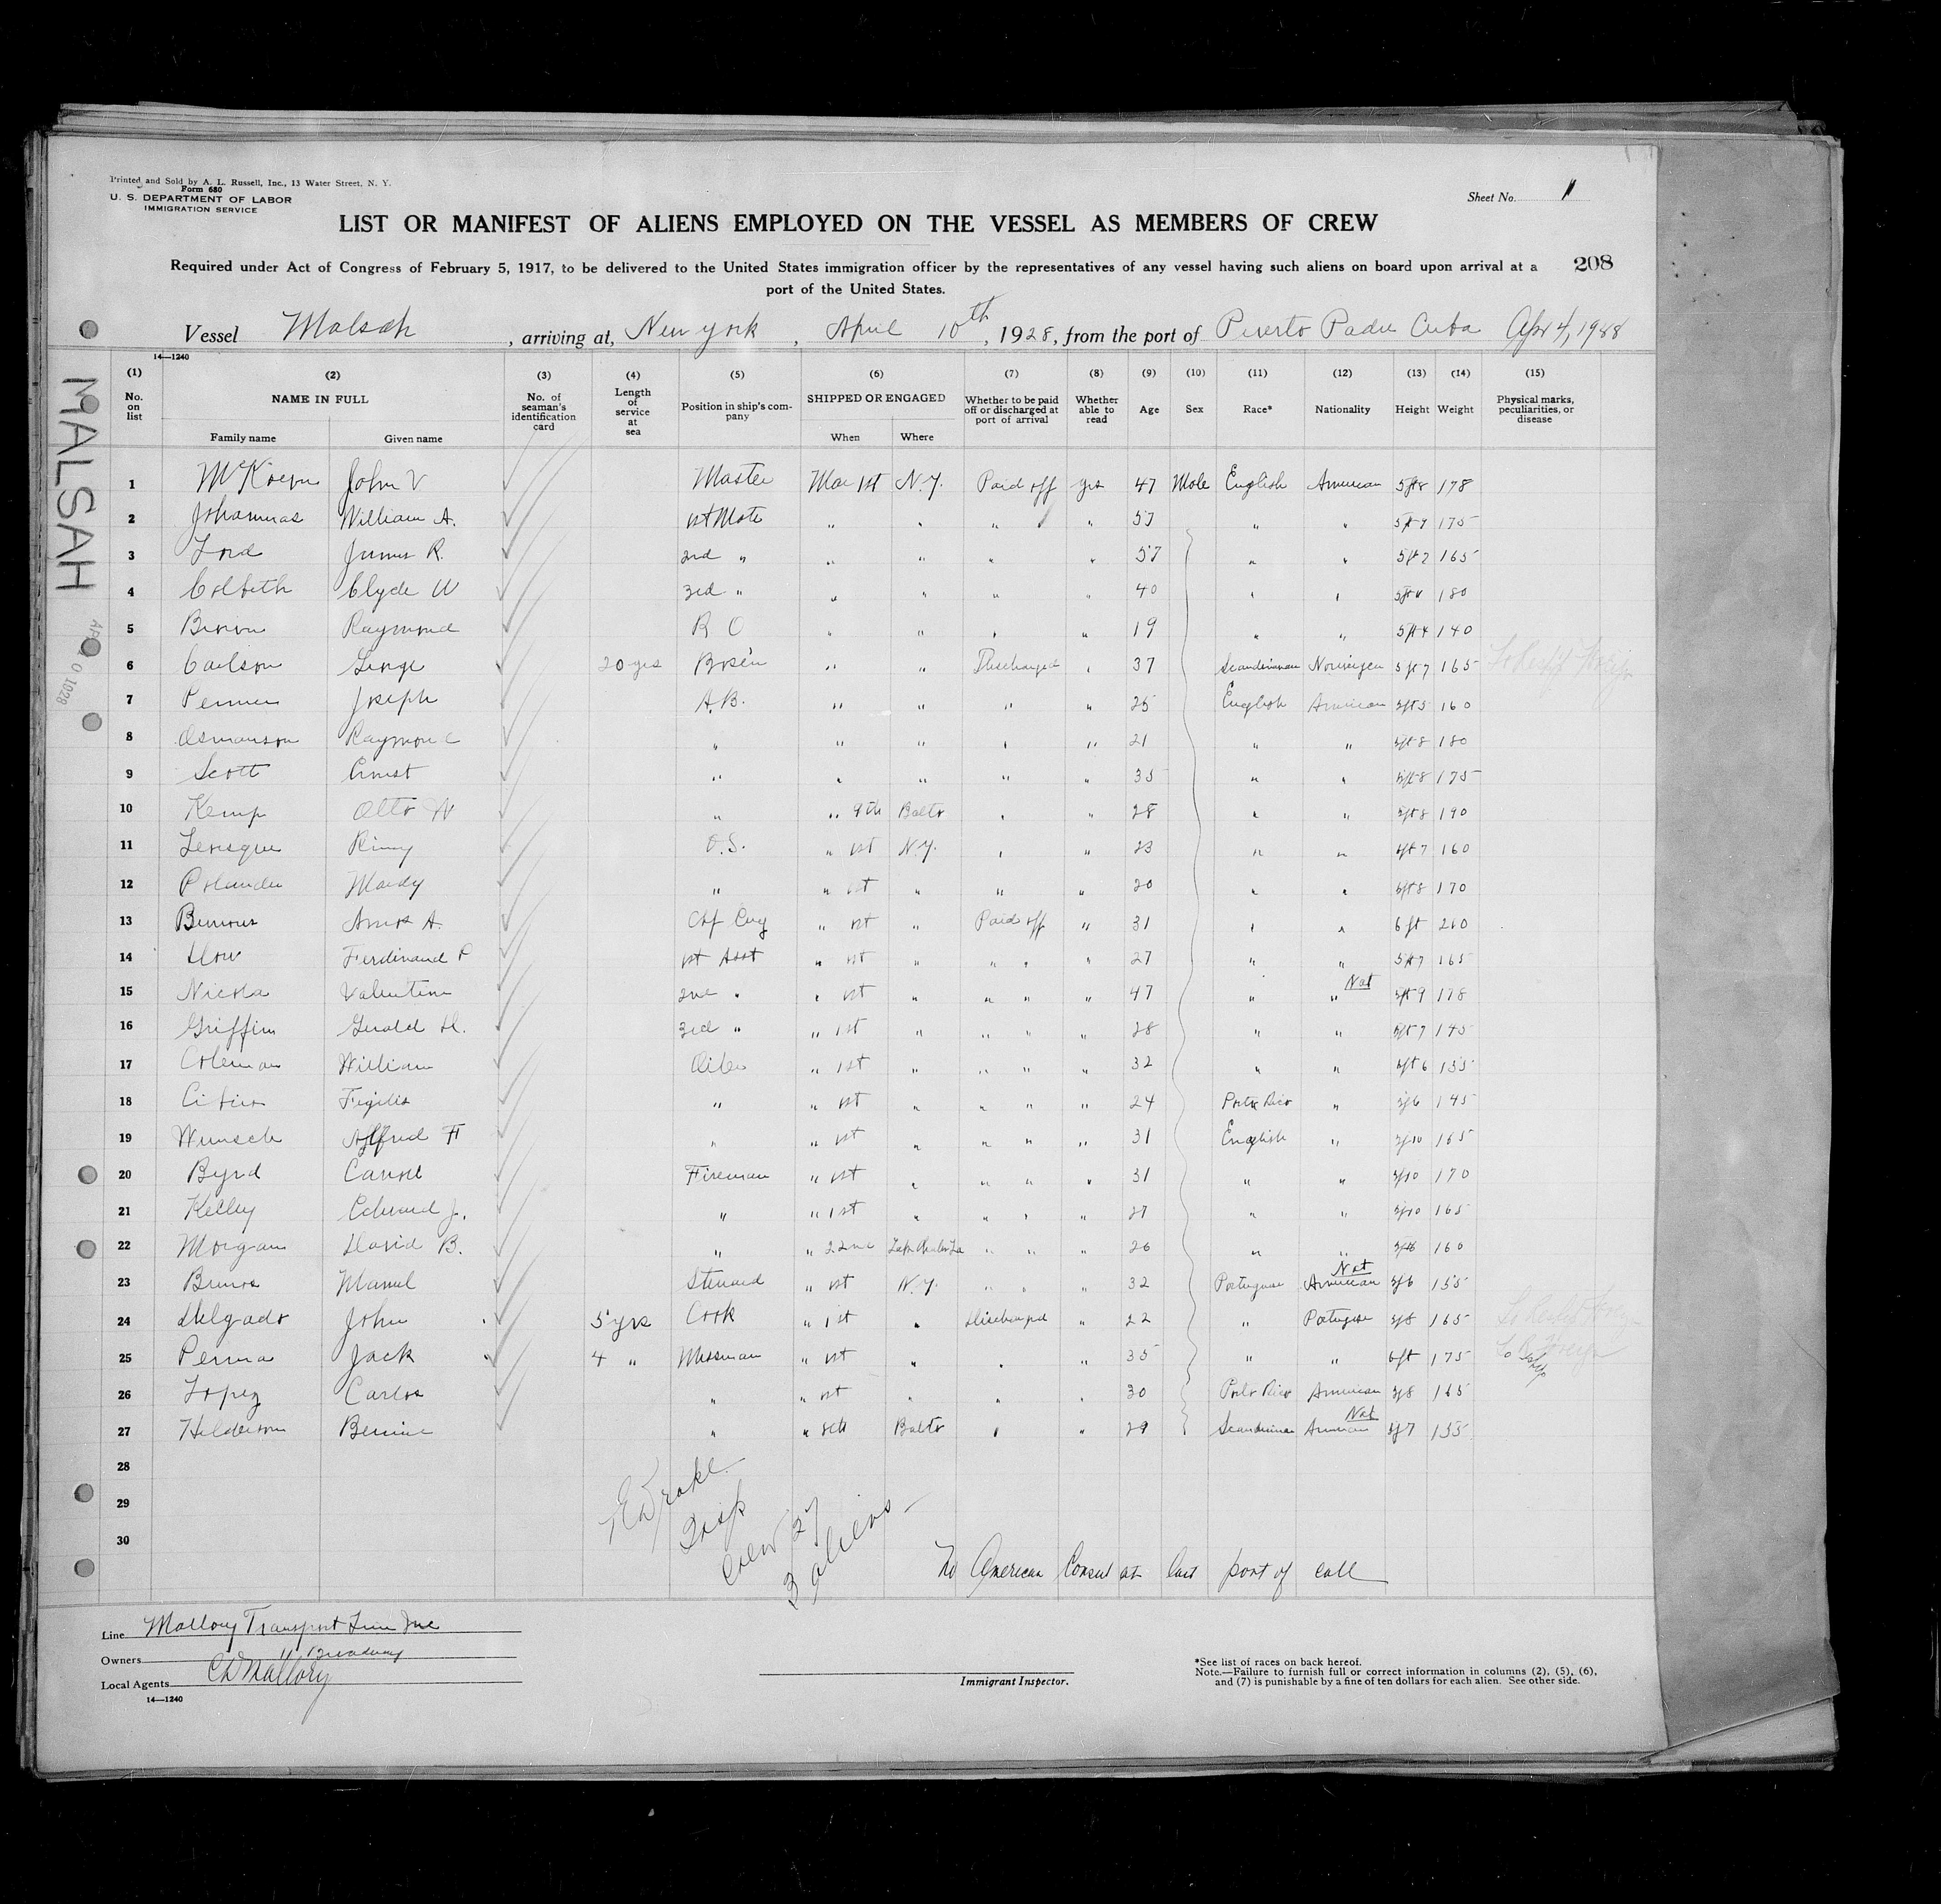 Printed and Sold by A. L. Russell, Inc., 13 Water Street, N. Y.
Form 680
U. S. DEPARTMENT OF LABOR
IMMIGRATION SERVICE
Sheet No. 1
LIST OR MANIFEST OF ALIENS EMPLOYED ON THE VESSEL AS MEMBERS OF CREW
Required under Act of Congress of February 5, 1917, to be delivered to the United States immigration officer by the representatives of any vessel having such aliens on board upon arrival at a
port of the United States.
208
Vessel Malsah, arriving at, New York, April 10th, 1928, from the port of Puerto Padre Cuba Apr 4, 1928
14—1240
MALSAH
(1) (2) (3) (4) (5) (6) (7) (8) (9) (10) (11) (12) (13) (14) (15)
No. on list NAME IN FULL Family name Given name No. of seaman's identification card Length of service at sea Position in ship's company SHIPPED OR ENGAGED When Where Whether to be paid off or discharged at port of arrival Whether able to read Age Sex Race* Nationality Height Weight Physical marks, peculiarities, or disease
1 John V Master Mar 1st N.Y. Paid off yes 47 Male English American 5ft8 178
2 William A. 1st Mate " " " " 57 " " 175
3 James R. 2nd " " " " " 57 " " 5ft7 165
4 Colbeth Clyde W 3rd " " " " " 40 " " 180
5 Brown Raymond R O " " " " 19 " " 5ft4 140
6 Carlson 20 yrs Bos'n " " Discharged " 37 Scandinavian Norwegen 5ft7 165
7 Joseph A.B. " " " " 25 English American 5ft5 160
8 Osmanson Raymond " " " " " 21 " " 5ft8 180
9 Scott Ernest " " " " " 35 " " 5ft8 175
10 Kemp Otto W " " 9th Balto " " 28 " " 5ft8 190
11 O.S. " 1st N.Y. " " 23 " " 5ft7 160
12 " " 1st " " " 20 " " 5ft8 170
13 Amos A. Chf Eng " 1st " Paid off " 31 " " 6ft 210
14 Dow Ferdinand P 1st Asst " 1st " " " " 27 " " 5ft7 165
15 Valentine 2nd " " 1st " " " " 47 " " Nat 5ft9 178
16 Griffin Gerald H. 3rd " " 1st " " " " 28 " " 5ft7 145
17 Coleman William Oiler " 1st " " " " 32 " " 5ft6 135
18 " " 1st " " " " 24 Porto Rico " 5f6 145
19 Wunsch Alfred F " " 1st " " " " 31 English " 5f10 165
20 Byrd Fireman " 1st " " " " 31 " " 5f10 170
21 Kelley Edward J. " " 1st " " " " 27 " " 5f10 165
22 Morgan David B. " " 22nd " " " 26 " " 160
23 Steward " 1st N.Y. " " " 32 Portuguese Nat American 5f6 155
24 Delgado John 5 yrs Cook " 1st " Discharged " 22 " Portuguese 5f8 165
25 Jack 4 " Messman " 1st " " " 35 " " 6ft 175
26 Lopez Carlos " " 1st " " " 30 Porto Rico American 5f8 165
27 " " 8th Balto " " 29 Scandinavian Nat American 5f7 135
28
29
30
Crew 27
3 aliens
No American Consul at last port of call
Line Mallory Transport Line Inc
Owners 11 Broadway
Local Agents CD Mallory
14—1240
Immigrant Inspector.
*See list of races on back hereof.
Note.—Failure to furnish full or correct information in columns (2), (5), (6),
and (7) is punishable by a fine of ten dollars for each alien. See other side.